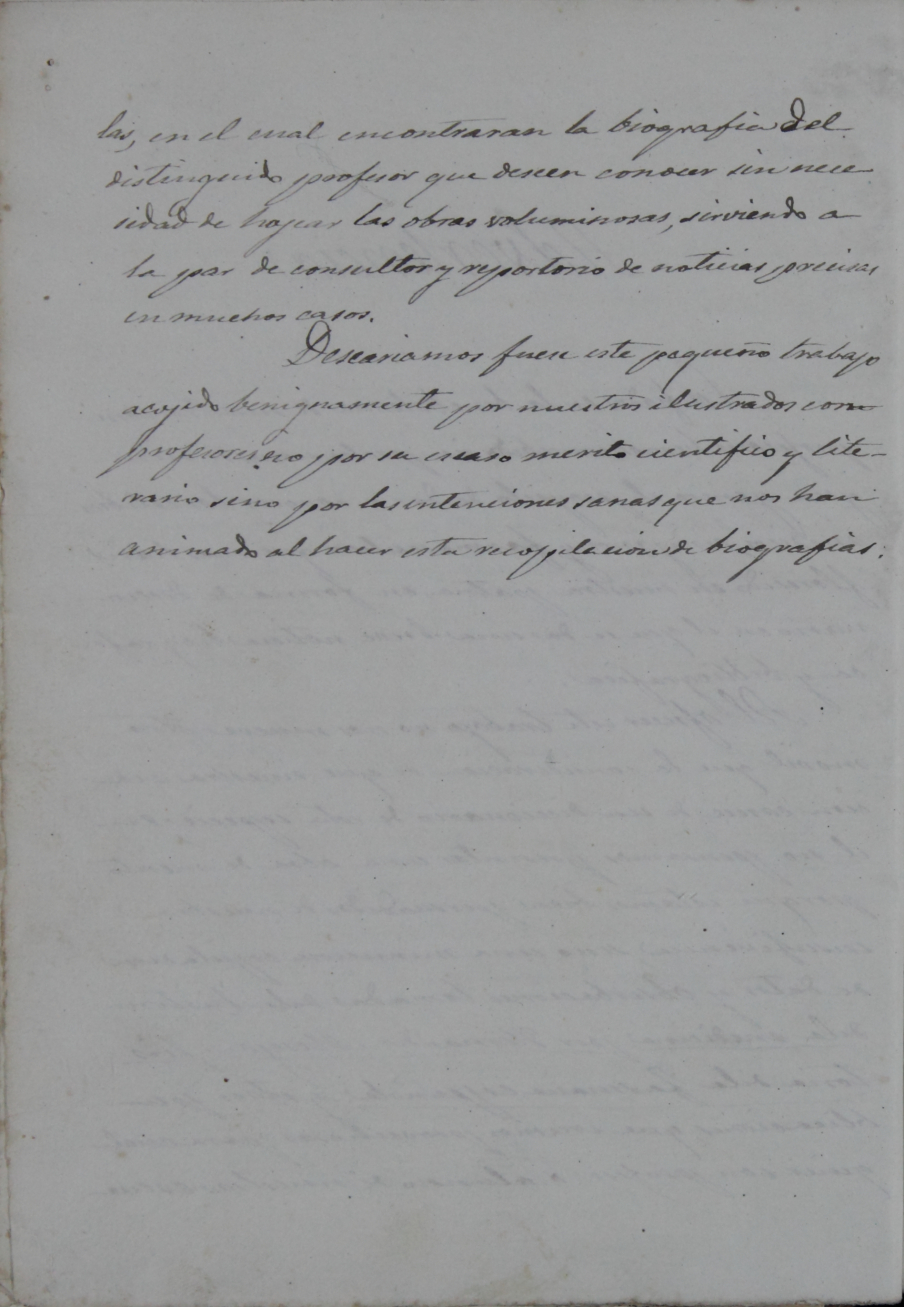 las, en el cual encontraran la biografia del
distinguido profesor que deseen conocer sin nece
sidad de hojear las obras voluminosas, sirviendo a
la par de consultor y repertorio de noticias precisas
en muchos casos.
Deseariamos fuese este pequeño trabajo
acojido benignamente por nuestros ilustrados com
profesores; no por su escaso merito cientifico y lite-
rario sino por las intenciones sanas que nos han
animado al hacer esta recopilacion de biografias.